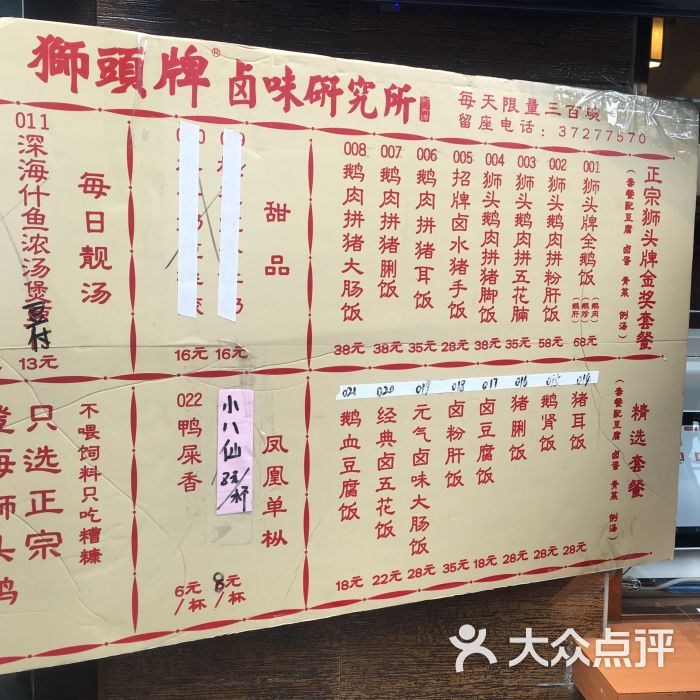 獅頭牌® 卤味研究所
每天限量三百晚
留座电话:37277570
正宗狮头牌金奖套餐
(套餐配豆腐 卤蛋 青菜 例汤)
001 狮头牌全鹅饭 (鹅肉)(鹅胗)(鹅肝) 68元
002 狮头鹅肉拼粉肝饭 58元
003 狮头鹅肉拼五花腩 38元
004 狮头鹅肉拼猪脚饭 38元
005 招牌卤水猪手饭 28元
006 鹅肉拼猪耳饭 35元
007 鹅肉拼猪脷饭 38元
008 鹅肉拼猪大肠饭 38元
甜品
16元
16元
每日靓汤
011 深海什鱼浓汤煲
豆付
13元
精选套餐
(套餐配豆腐 卤蛋 青菜 例汤)
014 猪耳饭 28元
015 鹅肾饭 28元
016 猪脷饭 28元
017 卤豆腐饭 18元
018 卤粉肝饭 35元
019 元气卤味大肠饭 28元
020 经典卤五花饭 22元
021 鹅血豆腐饭 18元
凤凰单枞
小八仙 8元/杯
8元/杯
022 鸭屎香 6元/杯
不喂饲料只吃糟糠
只选正宗
澄海狮头鹅
大众点评